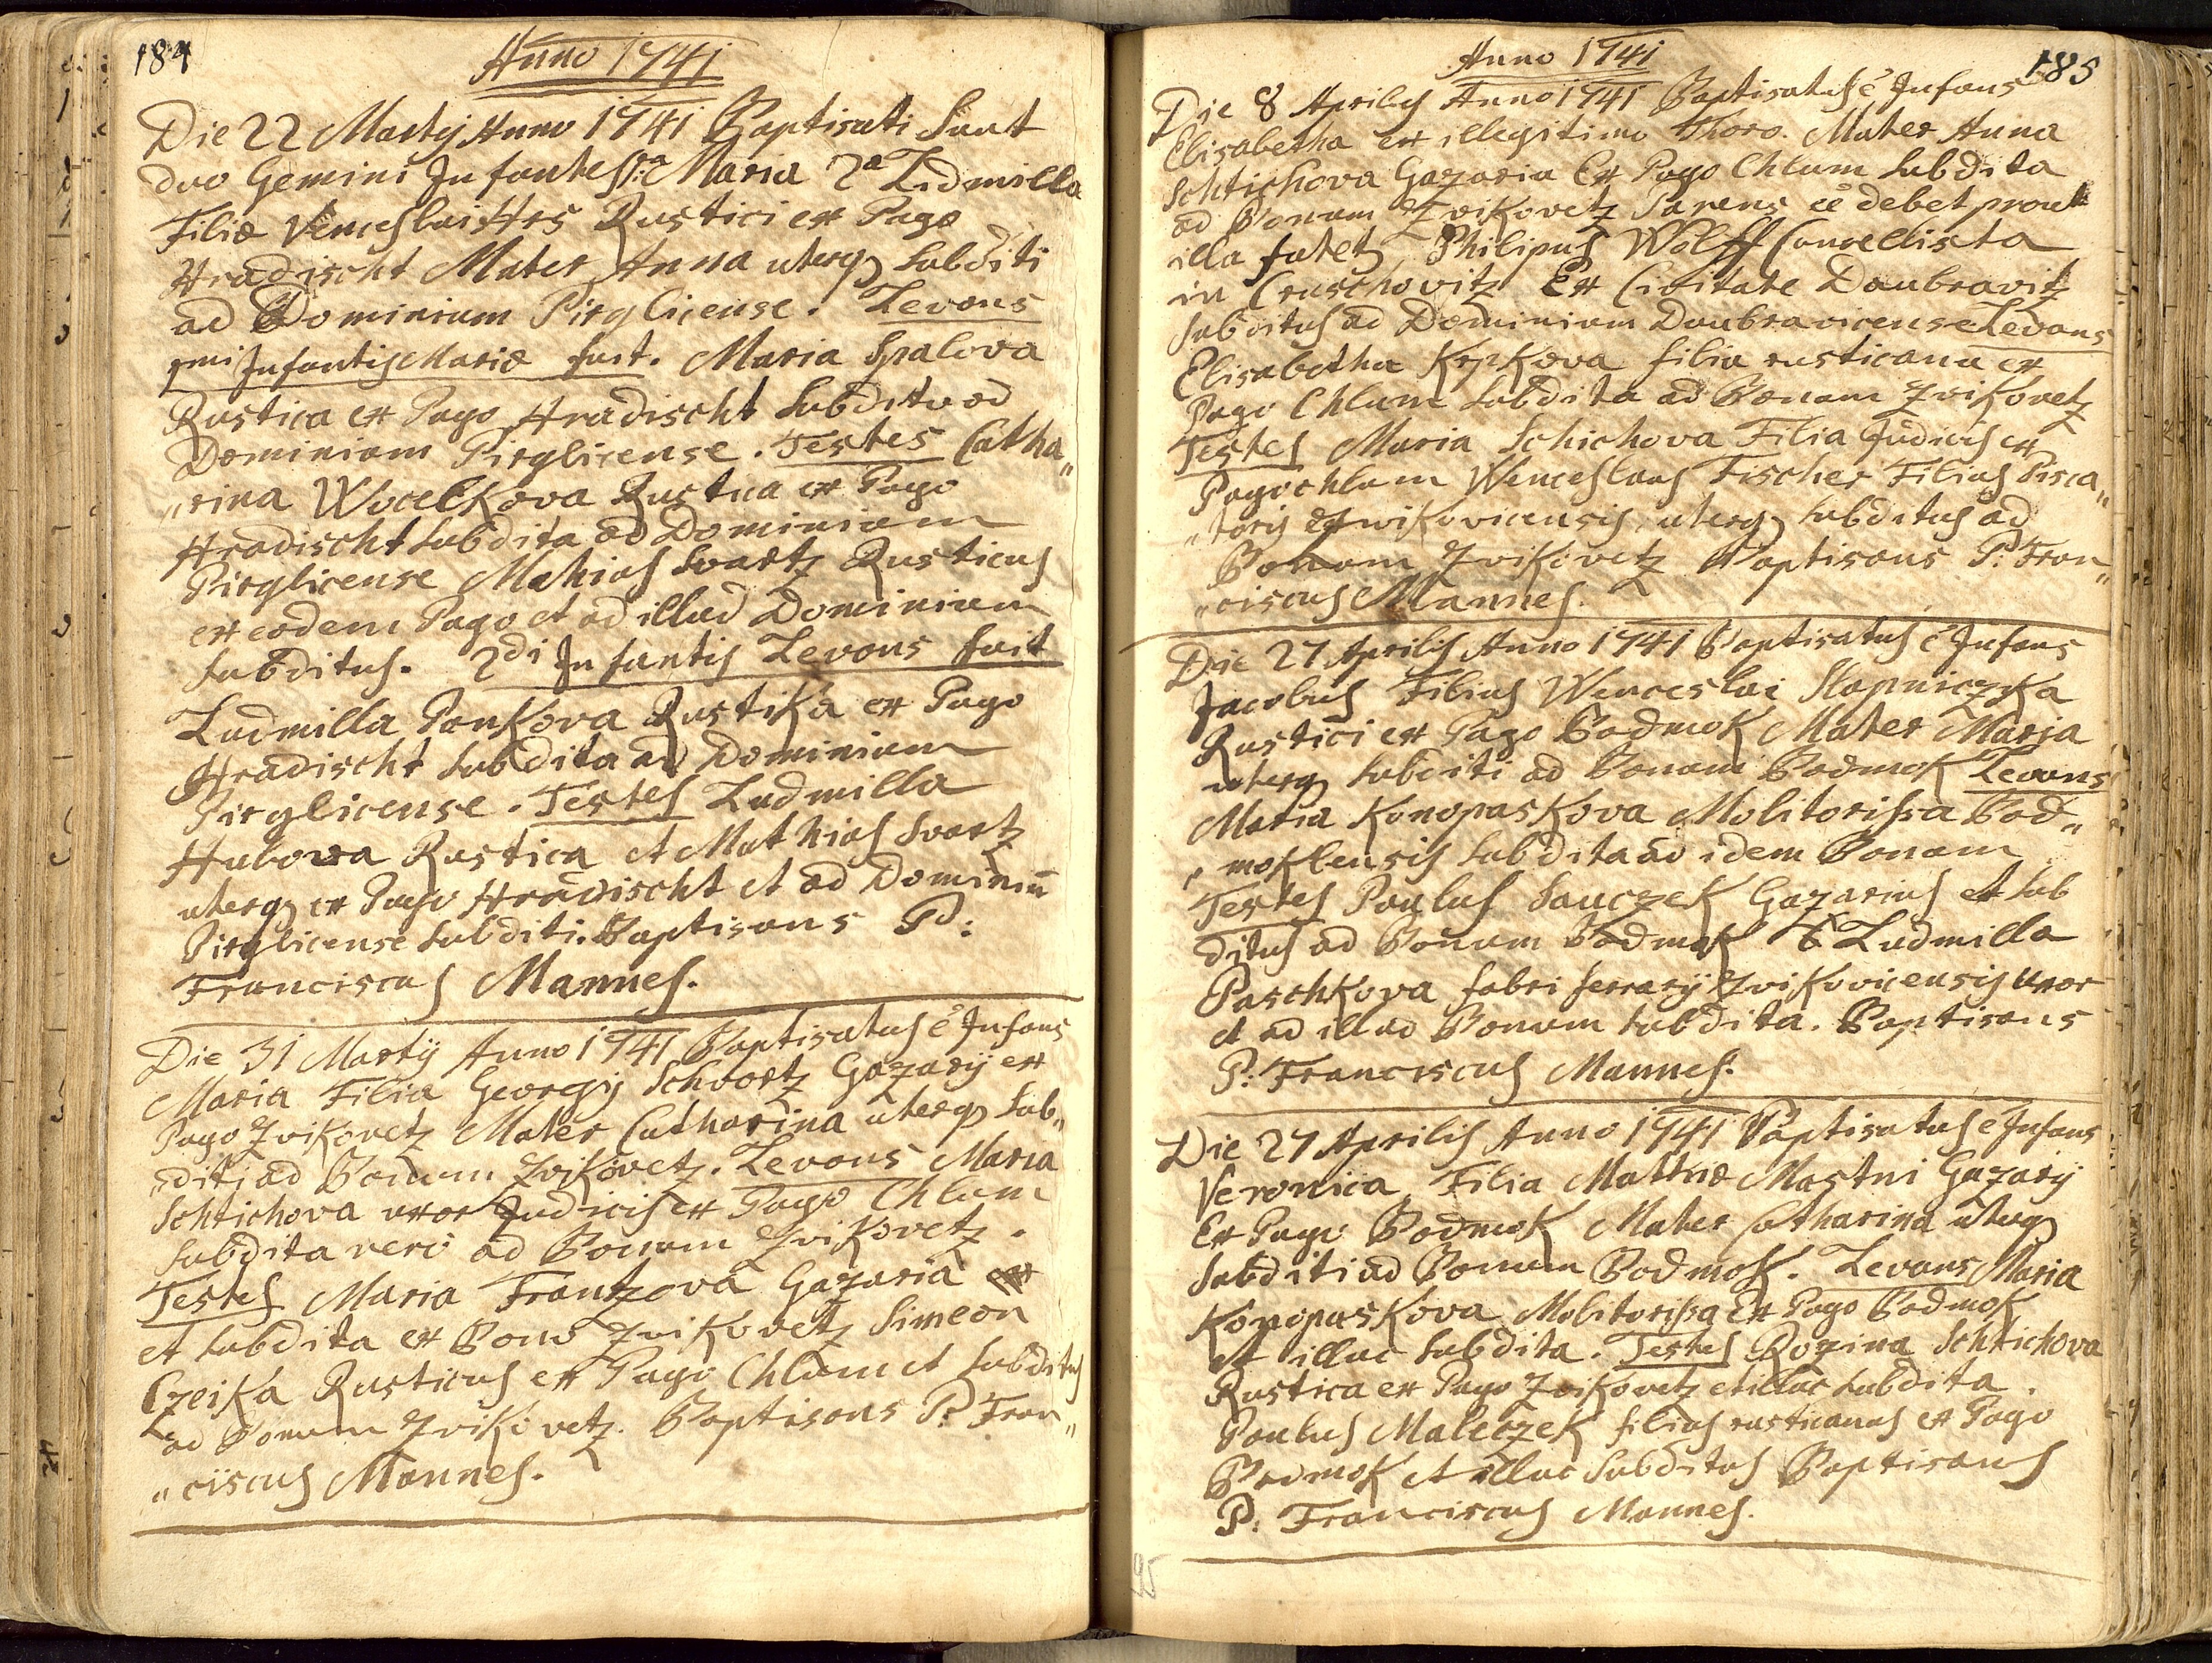 184
Anno 1741
Die 22 Martij Anno 1741 Baptisati Sunt
duo Gemini Infantes 1.a Maria 2a Lidmilla
Filiæ Venceslai Hrs Rustici ex Pago
Hradischt Mater Anna uterq subditi
ad Dominium Pirglicense. Levans
1mi Infantis Mariæ fuit. Maria Spalova
Rustica ex Pago Hradischt subdita ad
Dominium Pirglicense. Testes Catha„
„rina Wocelkova Rustica ex Pago
Hradischt subdita ad Dominium
Pirglicense Mathias Svartz Rusticus
ex eodem Pago et ad illud Dominium
subditus. 2di Infantis Levans fuit
Ludmilla Pankova Rustika ex Pago
Hradischt subdita ad Dominium
Pirglicense. Testes Ludmilla
Hubowa Rustica et Mathias Svartz
uterq ex Pago Hradischt et ad Dominiū
Pirglicense subditi. Baptisans P:
Franciscus Mannes.
Die 31 Martij Anno 1741 Baptisatus ē Infans
Maria Filia Georgij Schvartz Gazarij ex
Pago Zvikovetz Mater Catharina uterq sub„
„diti ad Bonum Zvikovetz. Levans Maria
Schtichova uxor Judicis ex Pago Chlum
subdita vero ad Bonum Zvikovetz.
Testes Maria Frantzova Gazaria
et subdita ex Bono Zvikovetz Simeon
Czeika Rusticus ex Pago Chlum et subditus
ad Bonum Zvikovetz. Baptisans P: Fran„
„ciscus Mannes.
185
Anno 1741
Die 8 Aprilis Anno 1741 Baptisatus ē Infans
Elisabetha ex illegitimo Thoro. Mater Anna
Schtichova Gazaria Ex Pago Chlum subdita
ad Bonum Zvikovetz Parens ēē debet prout
illa fatet Philipus Wolff Cancellista
in Cruschovitz Ex Civitate Daubravitz
subditus ad Dominium Daubravicense Levans
Elisabetha Krpkova filia rusticana ex
Pago Chlum subdita ad Bonum Zvikovetz
Testes Maria Schichova Filia Judicis ex
Pago chlum Wenceslaus Fischer Filius Pisca„
„toris Zwikovicensis, uterq subditus ad
Bonum Zvikovetz Baptisans P: Fran„
„ciscus Mannes.
Die 27 Aprilis Anno 1741 Baptisatus ē Infans
Jacobus Filius Wenceslai Slapniczka
Rustici ex Pago Podmok Mater Maria
uterq subditi ad Bonum Podmok Levans
Maria Konopaskova Molitorissa Pod„
„moklensis subdita ad idem Bonum
Testes Paulus Sauczek Gazarius et sub
ditus ad Bonum Podmok & Ludmilla
Paschkova fabri ferrarij Zvikovicensis uxor
et ad illud Bonum subdita. Baptisans
P: Franciscus Mannes.
Die 27 Aprilis Anno 1741 Baptisatus ē Infans
Veronica Filia Mathiæ Mastni Gazarij
Ex Pago Podmok Mater Catharina uterq
subditi ad Bonum Podmok. Levans Maria
Konopaskova Molitorissa Ex Pago Podmok
et illuc subdita. Testes Rozina Schtichova
Rustica ex Pago Zvikovetz et illuc subdita.
Paulus Maleczek filius rusticanus ex Pago
Podmok et illuc subditus Baptisans
P: Franciscus Mannes.
95